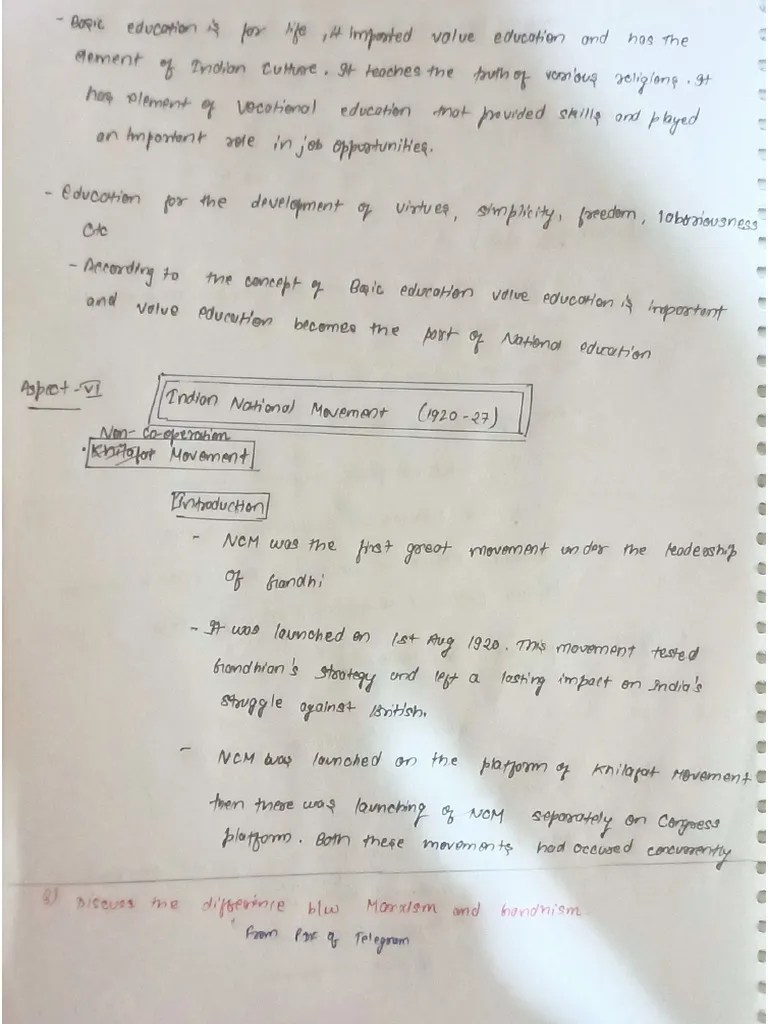 - Basic education is for life, It imparted value education and has the
element of Indian Culture. It teaches the truth of various religions. It
has element of Vocational education that provided skills and played
an important role in job opportunities.
- Education for the development of virtues, simplicity, freedom, laboriousness
etc
- According to the concept of Basic education value education is important
and value education becomes the part of National education
Aspect-VI
Indian National Movement (1920-27)
Non-Co-operation
Khilafat Movement
Introduction
- NCM was the first great movement under the leadership
of Gandhi
- It was launched on 1st Aug 1920. This movement tested
Gandhian's strategy and left a lasting impact on India's
struggle against British.
- NCM was launched on the platform of Khilafat Movement
then there was launching of NCM separately on Congress
platform. Both these movements had occused concurrently
Discuss the difference b/w Marxism and Gandhism.
From PDF of Telegram